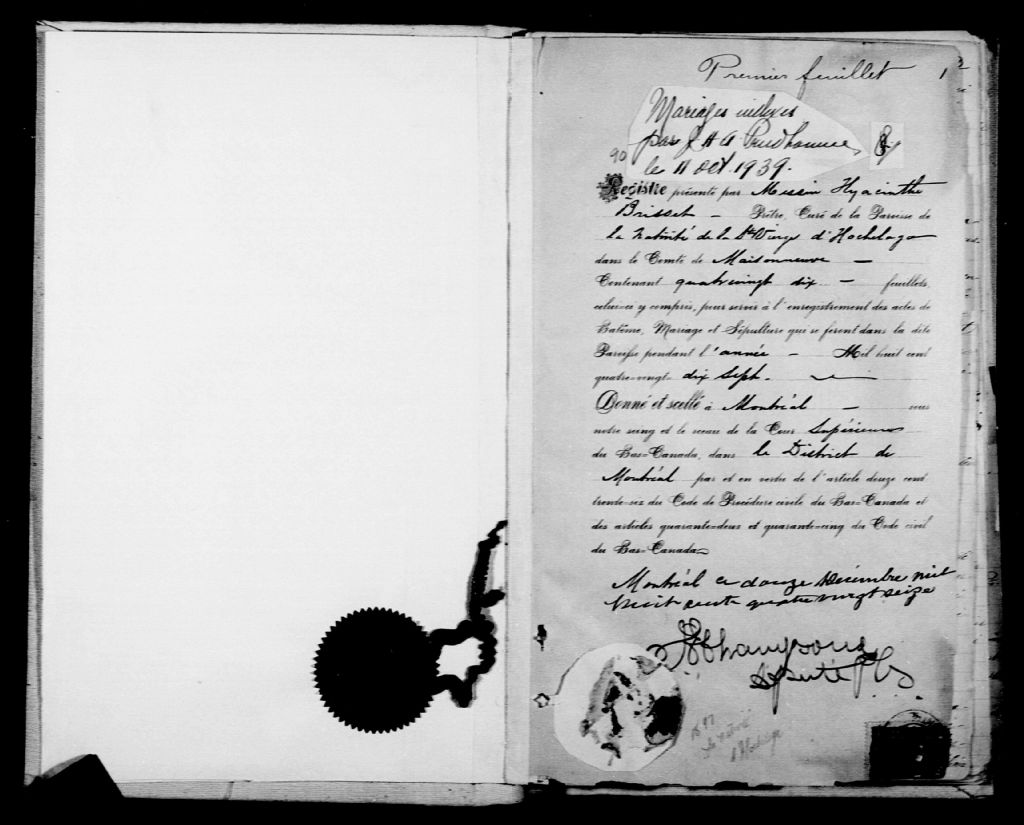 Premier feuillet 1
Mariages indexés
par J H A Prudhomme
90
le 11 oct. 1939.
Registre présenté par Messire Hyacinthe
Brisset — Prêtre, Curé de la Paroisse de
la Nativité de la Ste Vierge d'Hochelaga
dans le Comté de Maisonneuve —
Contenant quatrevingt dix — feuillets,
celui-ci y compris, pour servir à l'enregistrement des actes de
Batême, Mariage et Sépulture qui se feront dans la dite
Paroisse pendant l'année — Mil huit cent
quatre-vingt- dix sept. —
Donné et scellé à Montréal — sous
notre seing et le sceau de la Cour Supérieure
du Bas-Canada, dans le District de
Montréal par et en vertu de l'article douze cent
trente-six du Code de Procédure civile du Bas-Canada et
des articles quarante-deux et quarante-cinq du Code civil
du Bas-Canada
Montréal ce douze Décembre mil
huit cent quatre vingt seize
Député
1897
la Nativité
d'Hochelaga